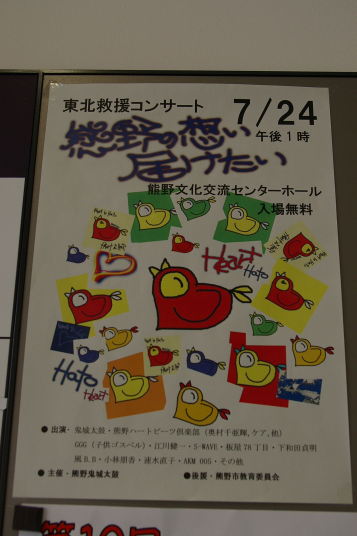 東北救援コンサート
7/24
午後1時
熊野の想い
届けたい
熊野文化交流センターホール
入場無料
Heart
Hato
Hato
Heart
●出演・鬼城太鼓・熊野ハートビーツ倶楽部（奥村千亜輝,ケア,他）
GGG（子供ゴスペル）・江川健一・S-WAVE・板屋78丁目・下和田貞明
風B.B・小林朋香・速水直子・AKM 005・その他
●主催・熊野鬼城太鼓
●後援・熊野市教育委員会